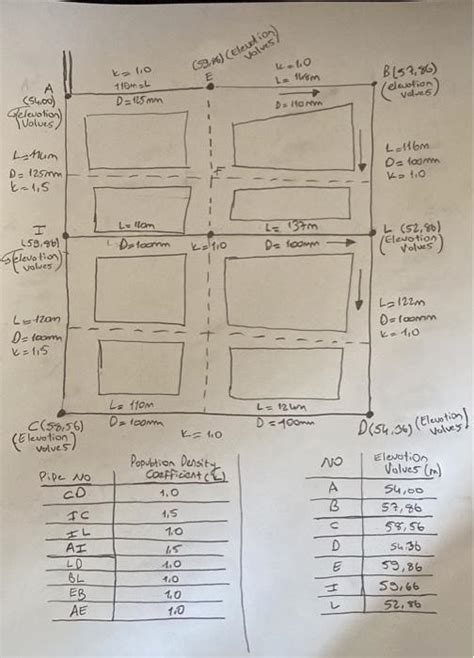 (59,86) (Elevation Values)
K = 1,0
E
K = 1,0
110m = L
L = 148m
A
B (57,86)
(54,00)
D = 125mm
D = 110mm
(elevation values)
(Elevation Values)
L = 116m
L = 114m
D = 100mm
D = 125mm
K = 1,0
K = 1,5
F
I
L = 110m
L = 137m
L (52,86)
(59,86)
D = 100mm
K = 1,0
D = 100mm
(Elevation Values)
(elevation values)
L = 122m
L = 120m
D = 100mm
D = 100mm
K = 1,0
K = 1,5
L = 110m
L = 124m
C (58,56)
D = 100mm
D = 100mm
D (54,36)
(Elevation Values)
(Elevation Values)
K = 1,0
Pipe No
Popultion Density Coefficient (k)
CD 1,0
IC 1,5
IL 1,0
AI 1,5
LD 1,0
BL 1,0
EB 1,0
AE 1,0
NO
Elevation Values (m)
A 54,00
B 57,86
C 58,56
D 54.36
E 59,86
I 59,66
L 52,86